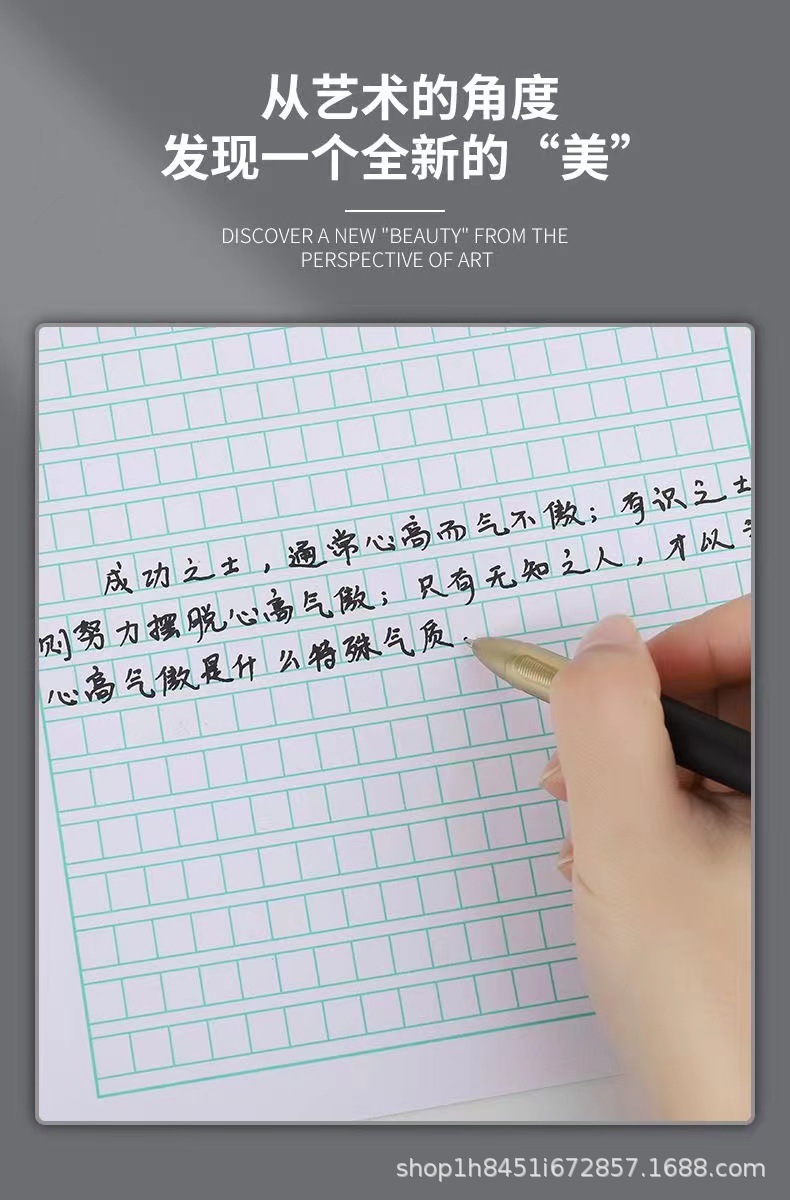 从艺术的角度
发现一个全新的“美”
DISCOVER A NEW "BEAUTY" FROM THE
PERSPECTIVE OF ART
成功之士，通常心高而气不傲；有识之士
则努力摆脱心高气傲；只有无知之人，才以
心高气傲是什么特殊气质.
shop1h8451i672857.1688.com